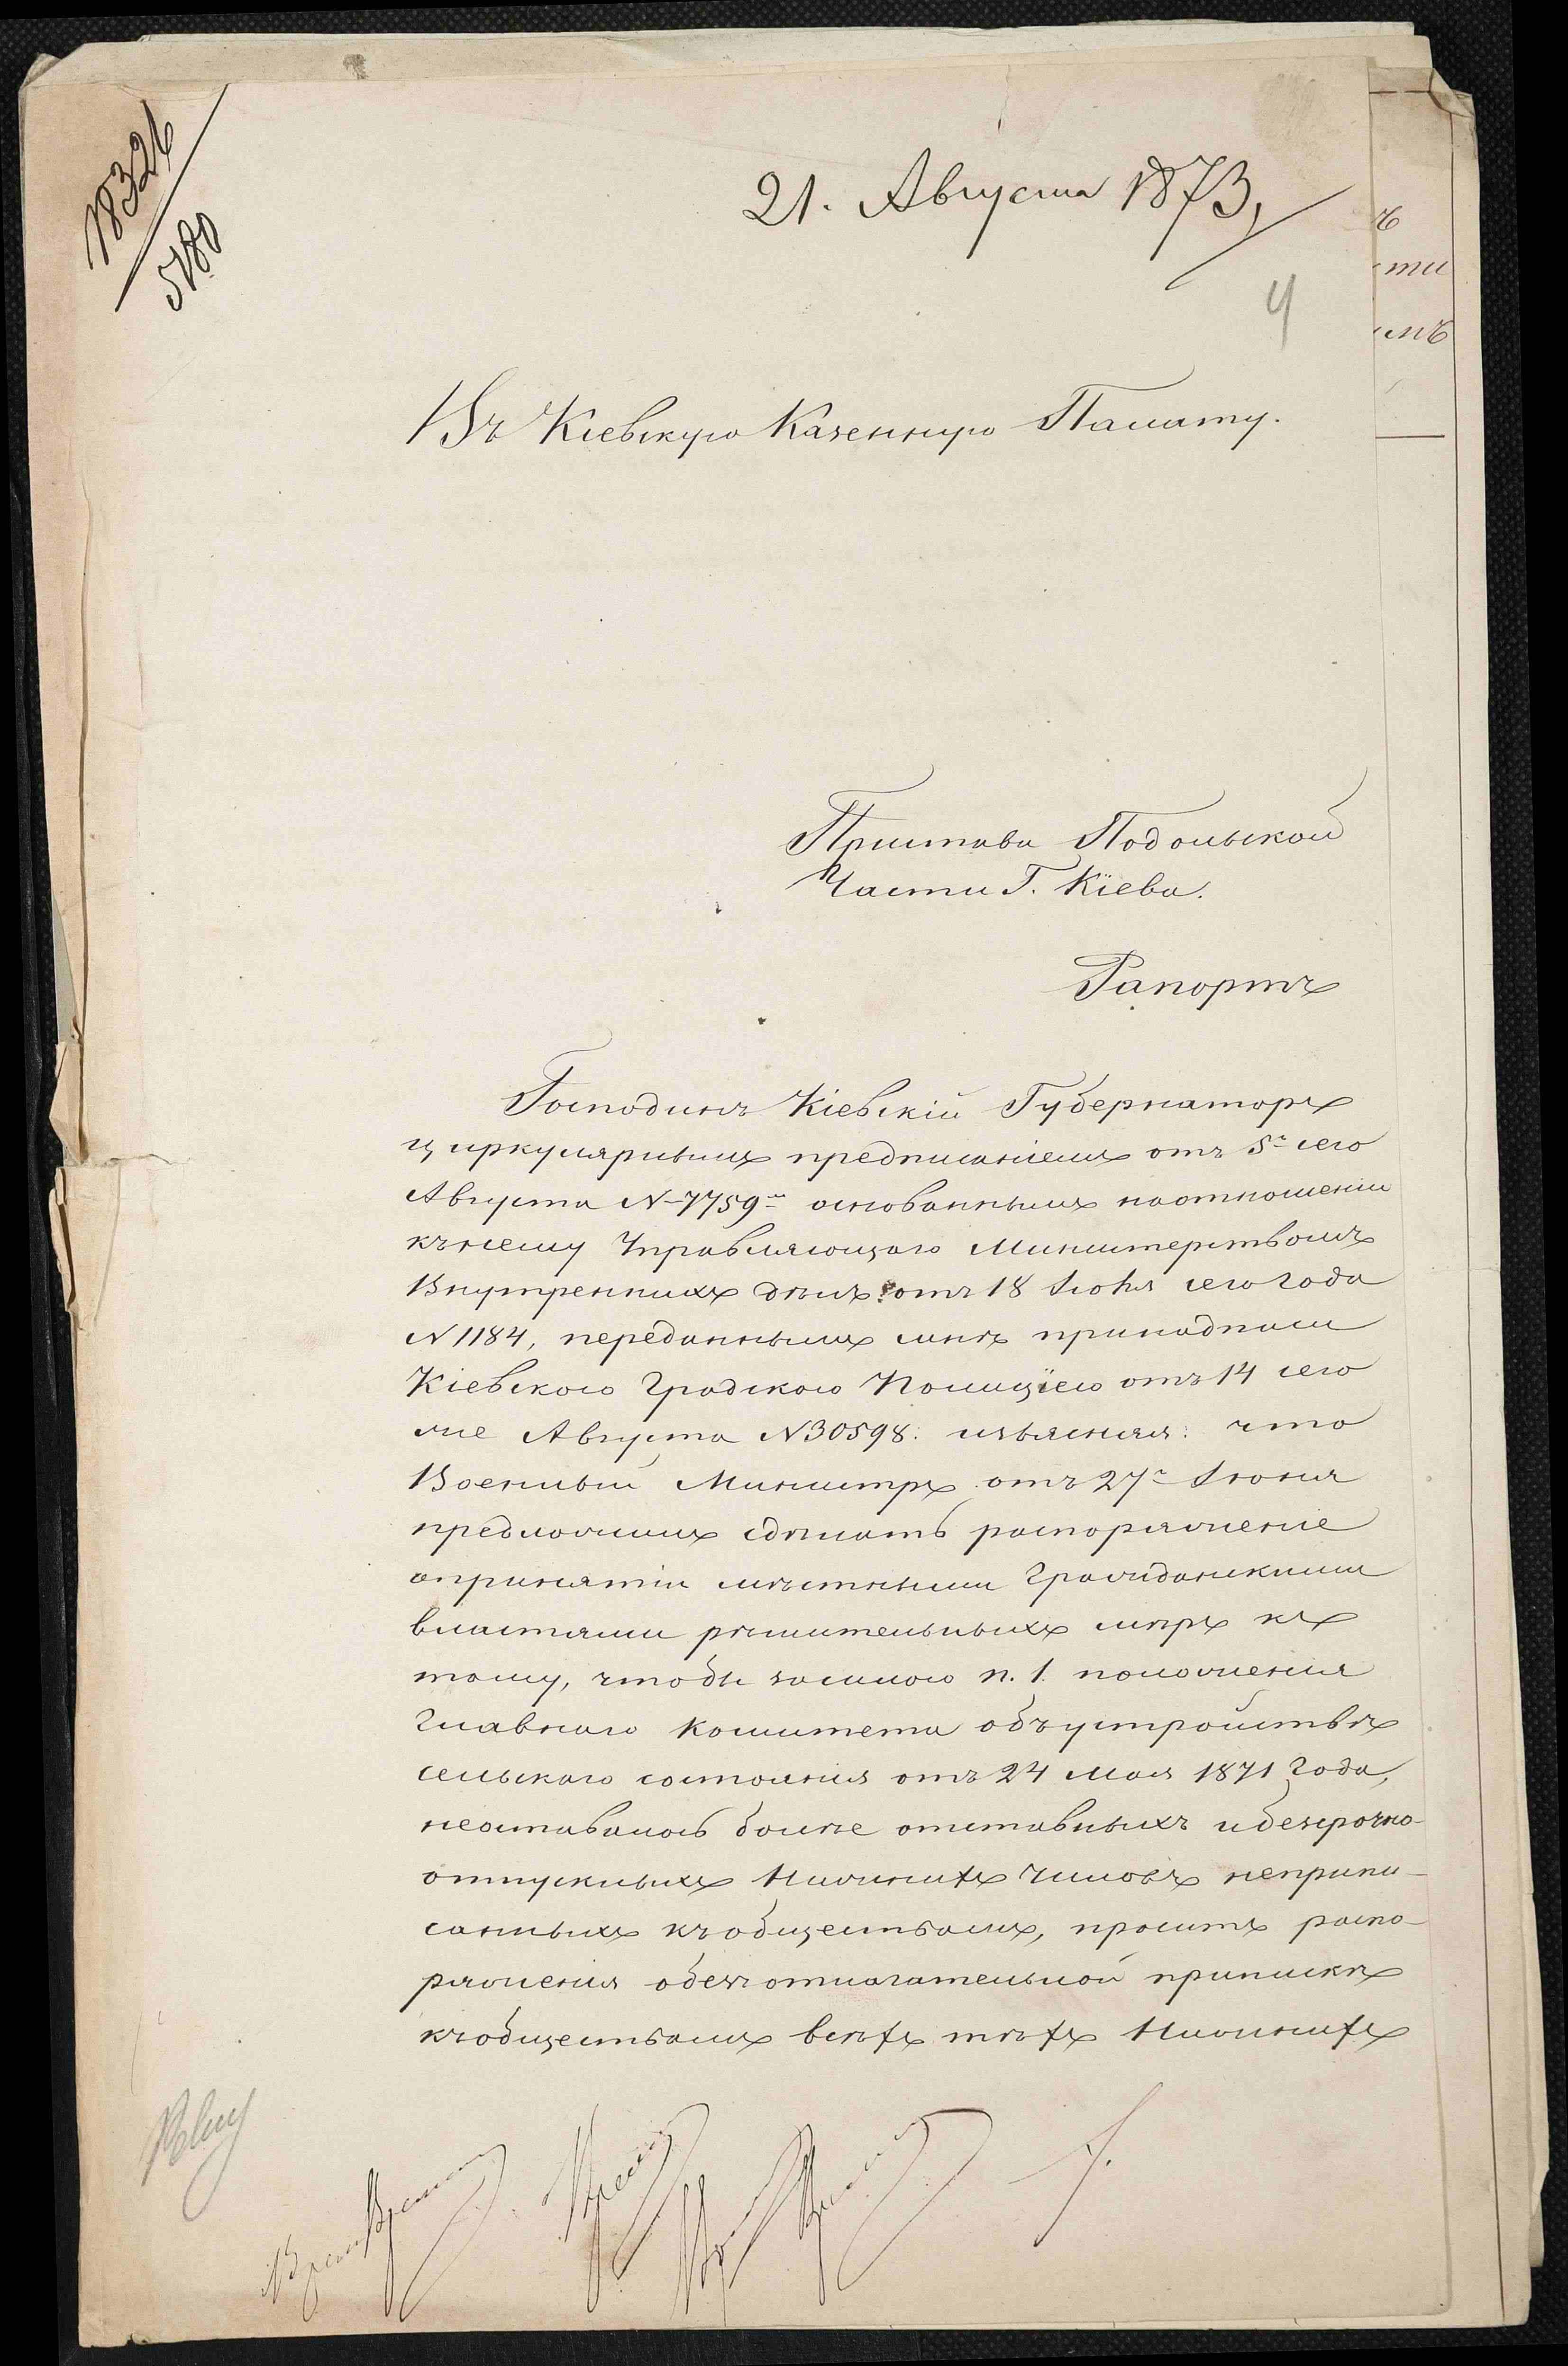 18326
5180
21. Августа 1873,
4
ъ
ти
мъ
Въ Кіевскую Казенную Палату.
Пристава Подольской
Части Г. Кіева.
Рапортъ
Господинъ Кіевскій Губернаторъ
циркулярнымъ предписаніемъ отъ 5го сего
Августа N 7759м основаннымъ наотношеніи
кънему Управляющаго Министерствомъ
Внутреннихъ дѣлъ отъ 18 Іюля сего года
N 1184, переданнымъ мнѣ принадписи
Кіевскою Градскою Полиціею отъ 14 сего
же Августа N 30598. изъясняя: что
Военный Министръ отъ 27г Іюня
предложилъ сдѣлать распоряженіе
опринятіи мѣстными Гражданскими
властями рѣшительныхъ мѣръ къ
тому, чтобы засилою п. 1. положенія
Главнаго комитета объустройствѣ
сельскаго состоянія отъ 24 мая 1871 Года,
неоставалось болѣе отставныхъ ибезсрочно-
отпускныхъ Нижнихъ Чиновъ неприпи-
санныхъ къобществамъ, проситъ распо-
ряженія объзотлагательной припискѣ
къобществамъ всѣхъ тѣхъ Нижнихъ